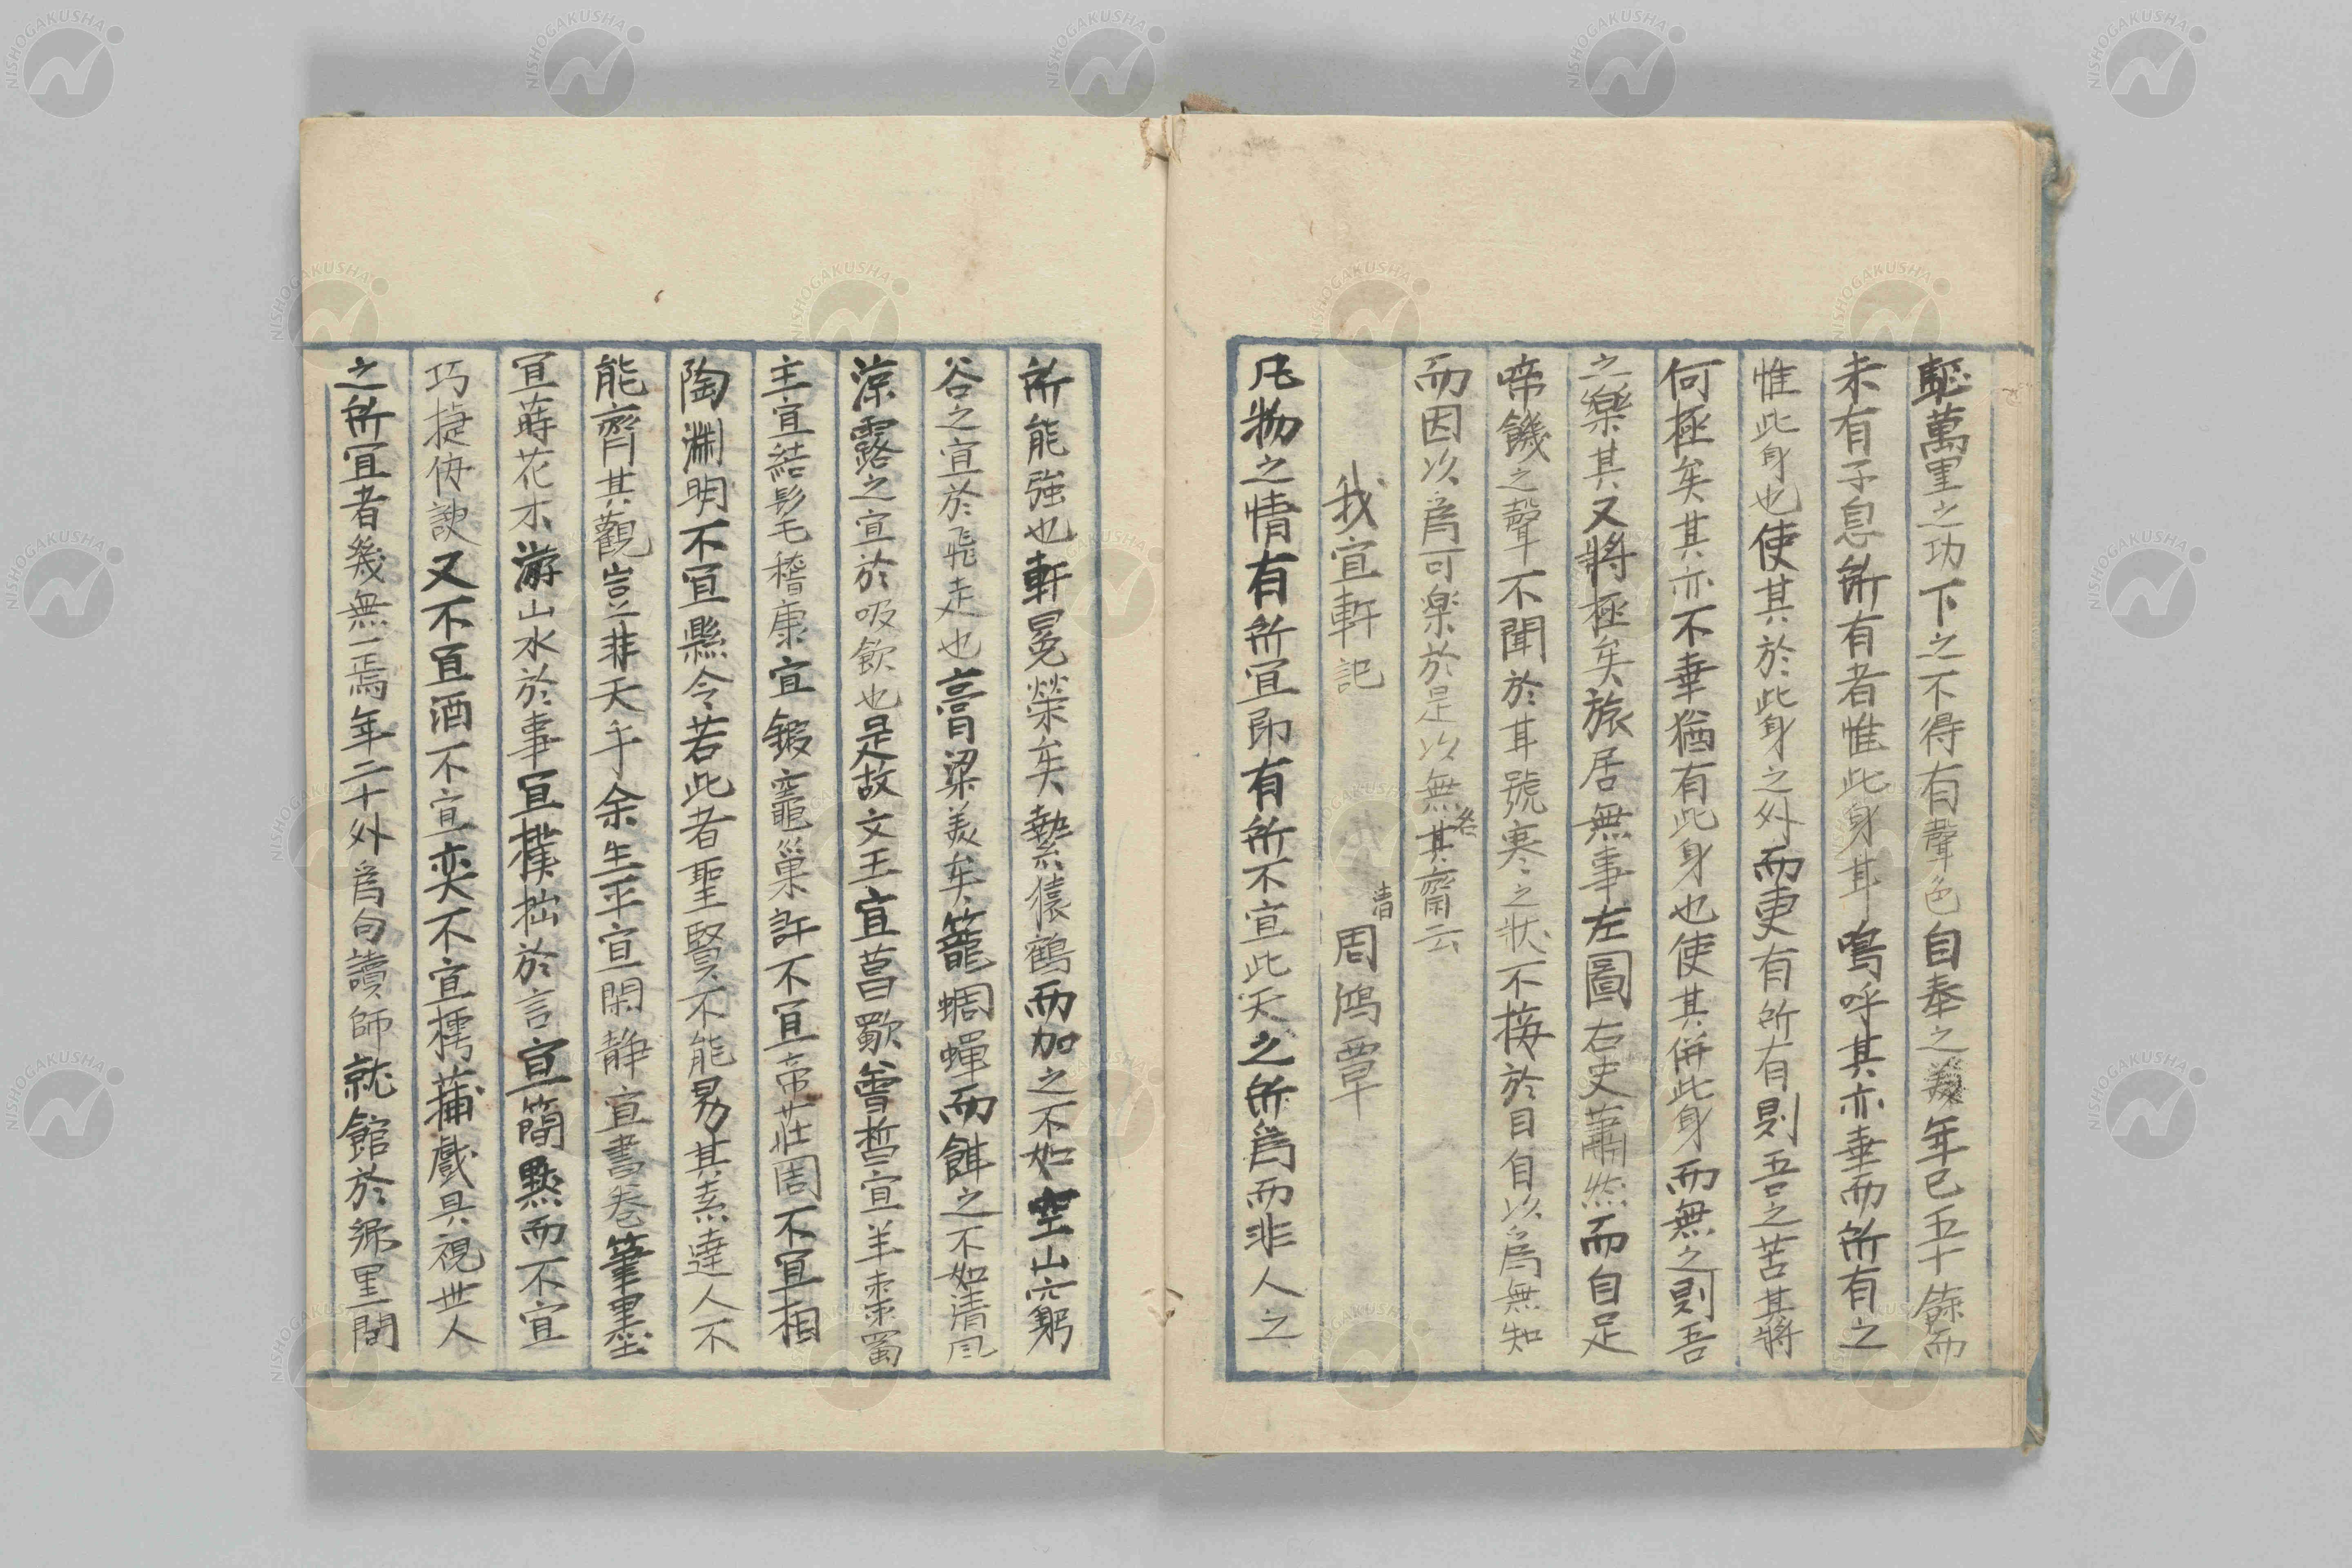 馳萬里之功下之不得有聲色自奉之美年已五十餘而
未有子息所有者惟此身耳嗚呼其亦幸而所有之
惟此身也使其於此身之外而更有所有則吾之苦其將
何極矣其亦不幸猶有此身也使其併此身而無之則吾
之樂其又將極矣旅居無事左圖右史蕭然而自足
啼饑之聲不聞於耳號寒之狀不接於目自以爲無知
而因以爲可楽於是以無名其齋云
我宜軒記
清 周鴻覃
凡物之情有所宜即有所不宜此天之所爲而非人之
所能強也軒冕榮矣縶猿鶴而加之不如空山穴躬
谷之宜於飛走也膏粱美矣籠蜩蟬而餌之不如清風
涼露之宜於吸飲也是故文王宜菖歜曾晳宜羊棗蜀
主宜結髦嵆康宜鍛竈巢許不宜帝莊周不宜相
陶淵明不宜縣令若此者聖賢不能易其素達人不
能齊其觀豈非天乎余生平宜閑靜宜書卷筆墨
宜蒔花木游山水於事宜樸拙於言宜簡點而不宜
巧捷侜諛又不宜酒不宜奕不宜樗蒱戲具視世人
之所宜者幾無一焉年二十外爲句讀師就館於鄉里間
NISHOGAKUSHA